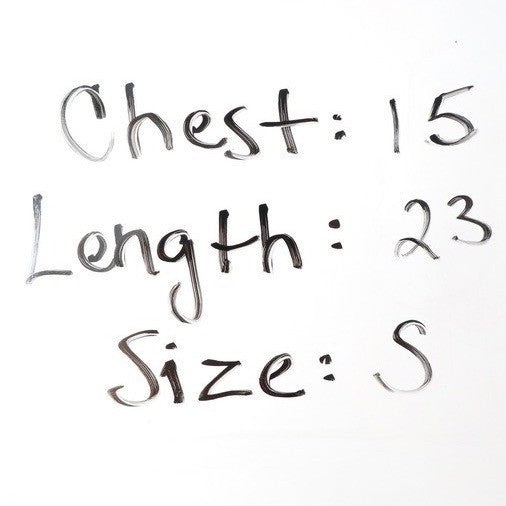 Chest: 15
Length: 23
Size: S